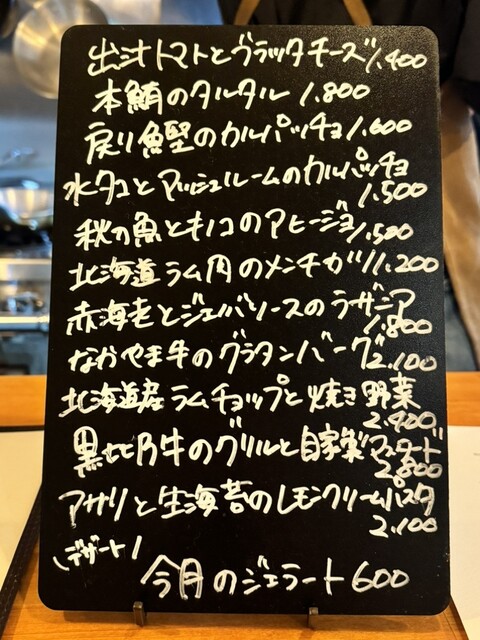 出汁トマトとブラッタチーズ1.400
本鮪のタルタル 1.800
戻り鰹のカルパッチョ1.600
水タコとマッシュルームのカルパッチョ
1.500
秋の魚とキノコのアヒージョ1.500
北海道ラム肉のメンチカツ1.200
赤海老とジェノバソースのラザニア
1.800
なかやま牛のグラタンバーグ2.100
北海道産ラムチョップと焼き野菜
2.400
黒毛乃牛のグリルと自家製マスタード
2.800
アサリと生海苔のレモンクリームパスタ
2.100
\デザート/
今月のジェラート600